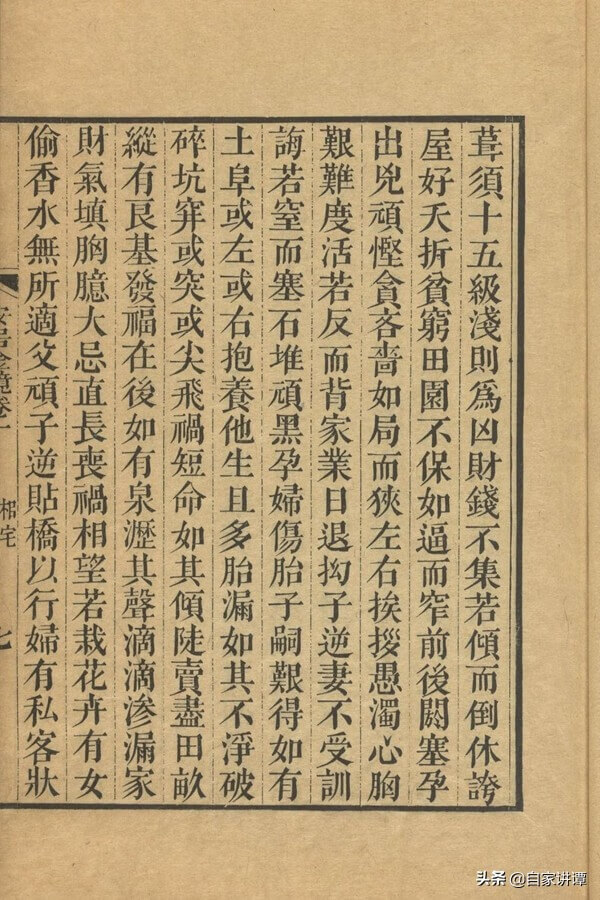 葺須十五級淺則爲凶財錢不集若傾而倒休誇
屋好夭折貧窮田園不保如逼而窄前後閼塞孕
出兇頑慳貪吝嗇如局而狹左右挨拶愚濁心胸
艱難度活若反而背家業日退拗子逆妻不受訓
誨若窒而塞石堆頑黑孕婦傷胎子嗣艱得如有
土阜或左或右抱養他生且多胎漏如其不淨破
碎坑穽或突或尖飛禍短命如其傾陡賣盡田畝
縱有艮基發福在後如有泉瀝其聲滴滴渗漏家
財氣填胸臆大忌直長喪禍相望若栽花卉有女
偷香水無所適父頑子逆貼橋以行婦有私客狀
卷一 宅 七
头条 @自家讲谭